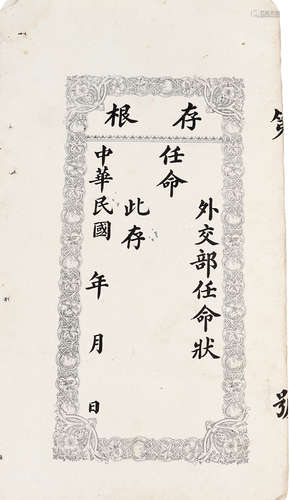 第
號
存根
外交部任命狀
任命
此存
中華民國
年 月 日